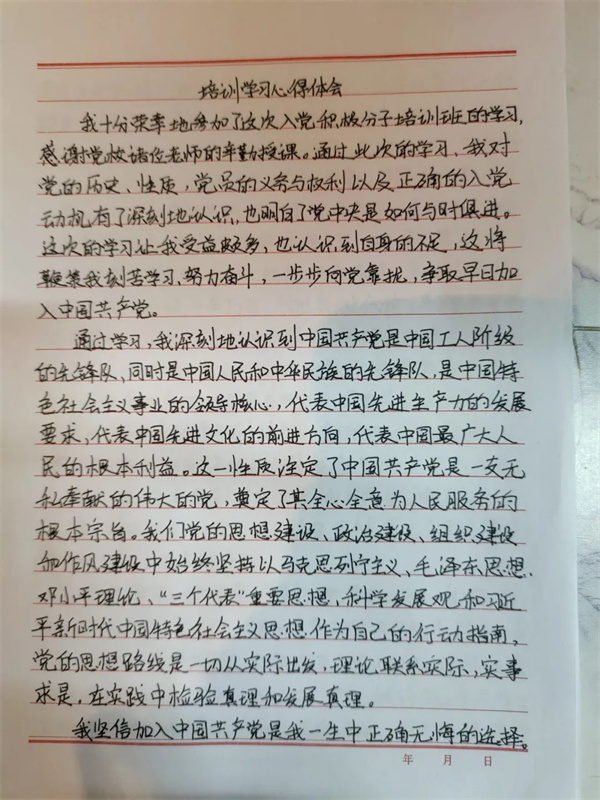 培训学习心得体会
我十分荣幸地参加了这次入党积极分子培训班的学习,
感谢党校诸位老师的辛勤授课。通过此次的学习、我对
党的历史、性质,党员的义务与权利以及正确的入党
动机有了深刻地认识,也明白了党中央是如何与时俱进。
这次的学习让我受益颇多,也认识到自身的不足,这将
鞭策我刻苦学习、努力奋斗,一步步向党靠拢,争取早日加
入中国共产党。
通过学习,我深刻地认识到中国共产党是中国工人阶级
的先锋队,同时是中国人民和中华民族的先锋队,是中国特
色社会主义事业的领导核心,代表中国先进生产力的发展
要求,代表中国先进文化的前进方向,代表中国最广大人
民的根本利益。这一性质注定了中国共产党是一支无
私奉献的伟大的党,奠定了其全心全意为人民服务的
根本宗旨。我们党的思想建设、政治建设、组织建设
和作风建设中始终坚持以马克思列宁主义、毛泽东思想、
邓小平理论、“三个代表”重要思想,科学发展观和习近
平新时代中国特色社会主义思想作为自己的行动指南,
党的思想路线是一切从实际出发,理论联系实际,实事
求是,在实践中检验真理和发展真理。
我坚信加入中国共产党是我一生中正确无悔的选择。
年 月 日